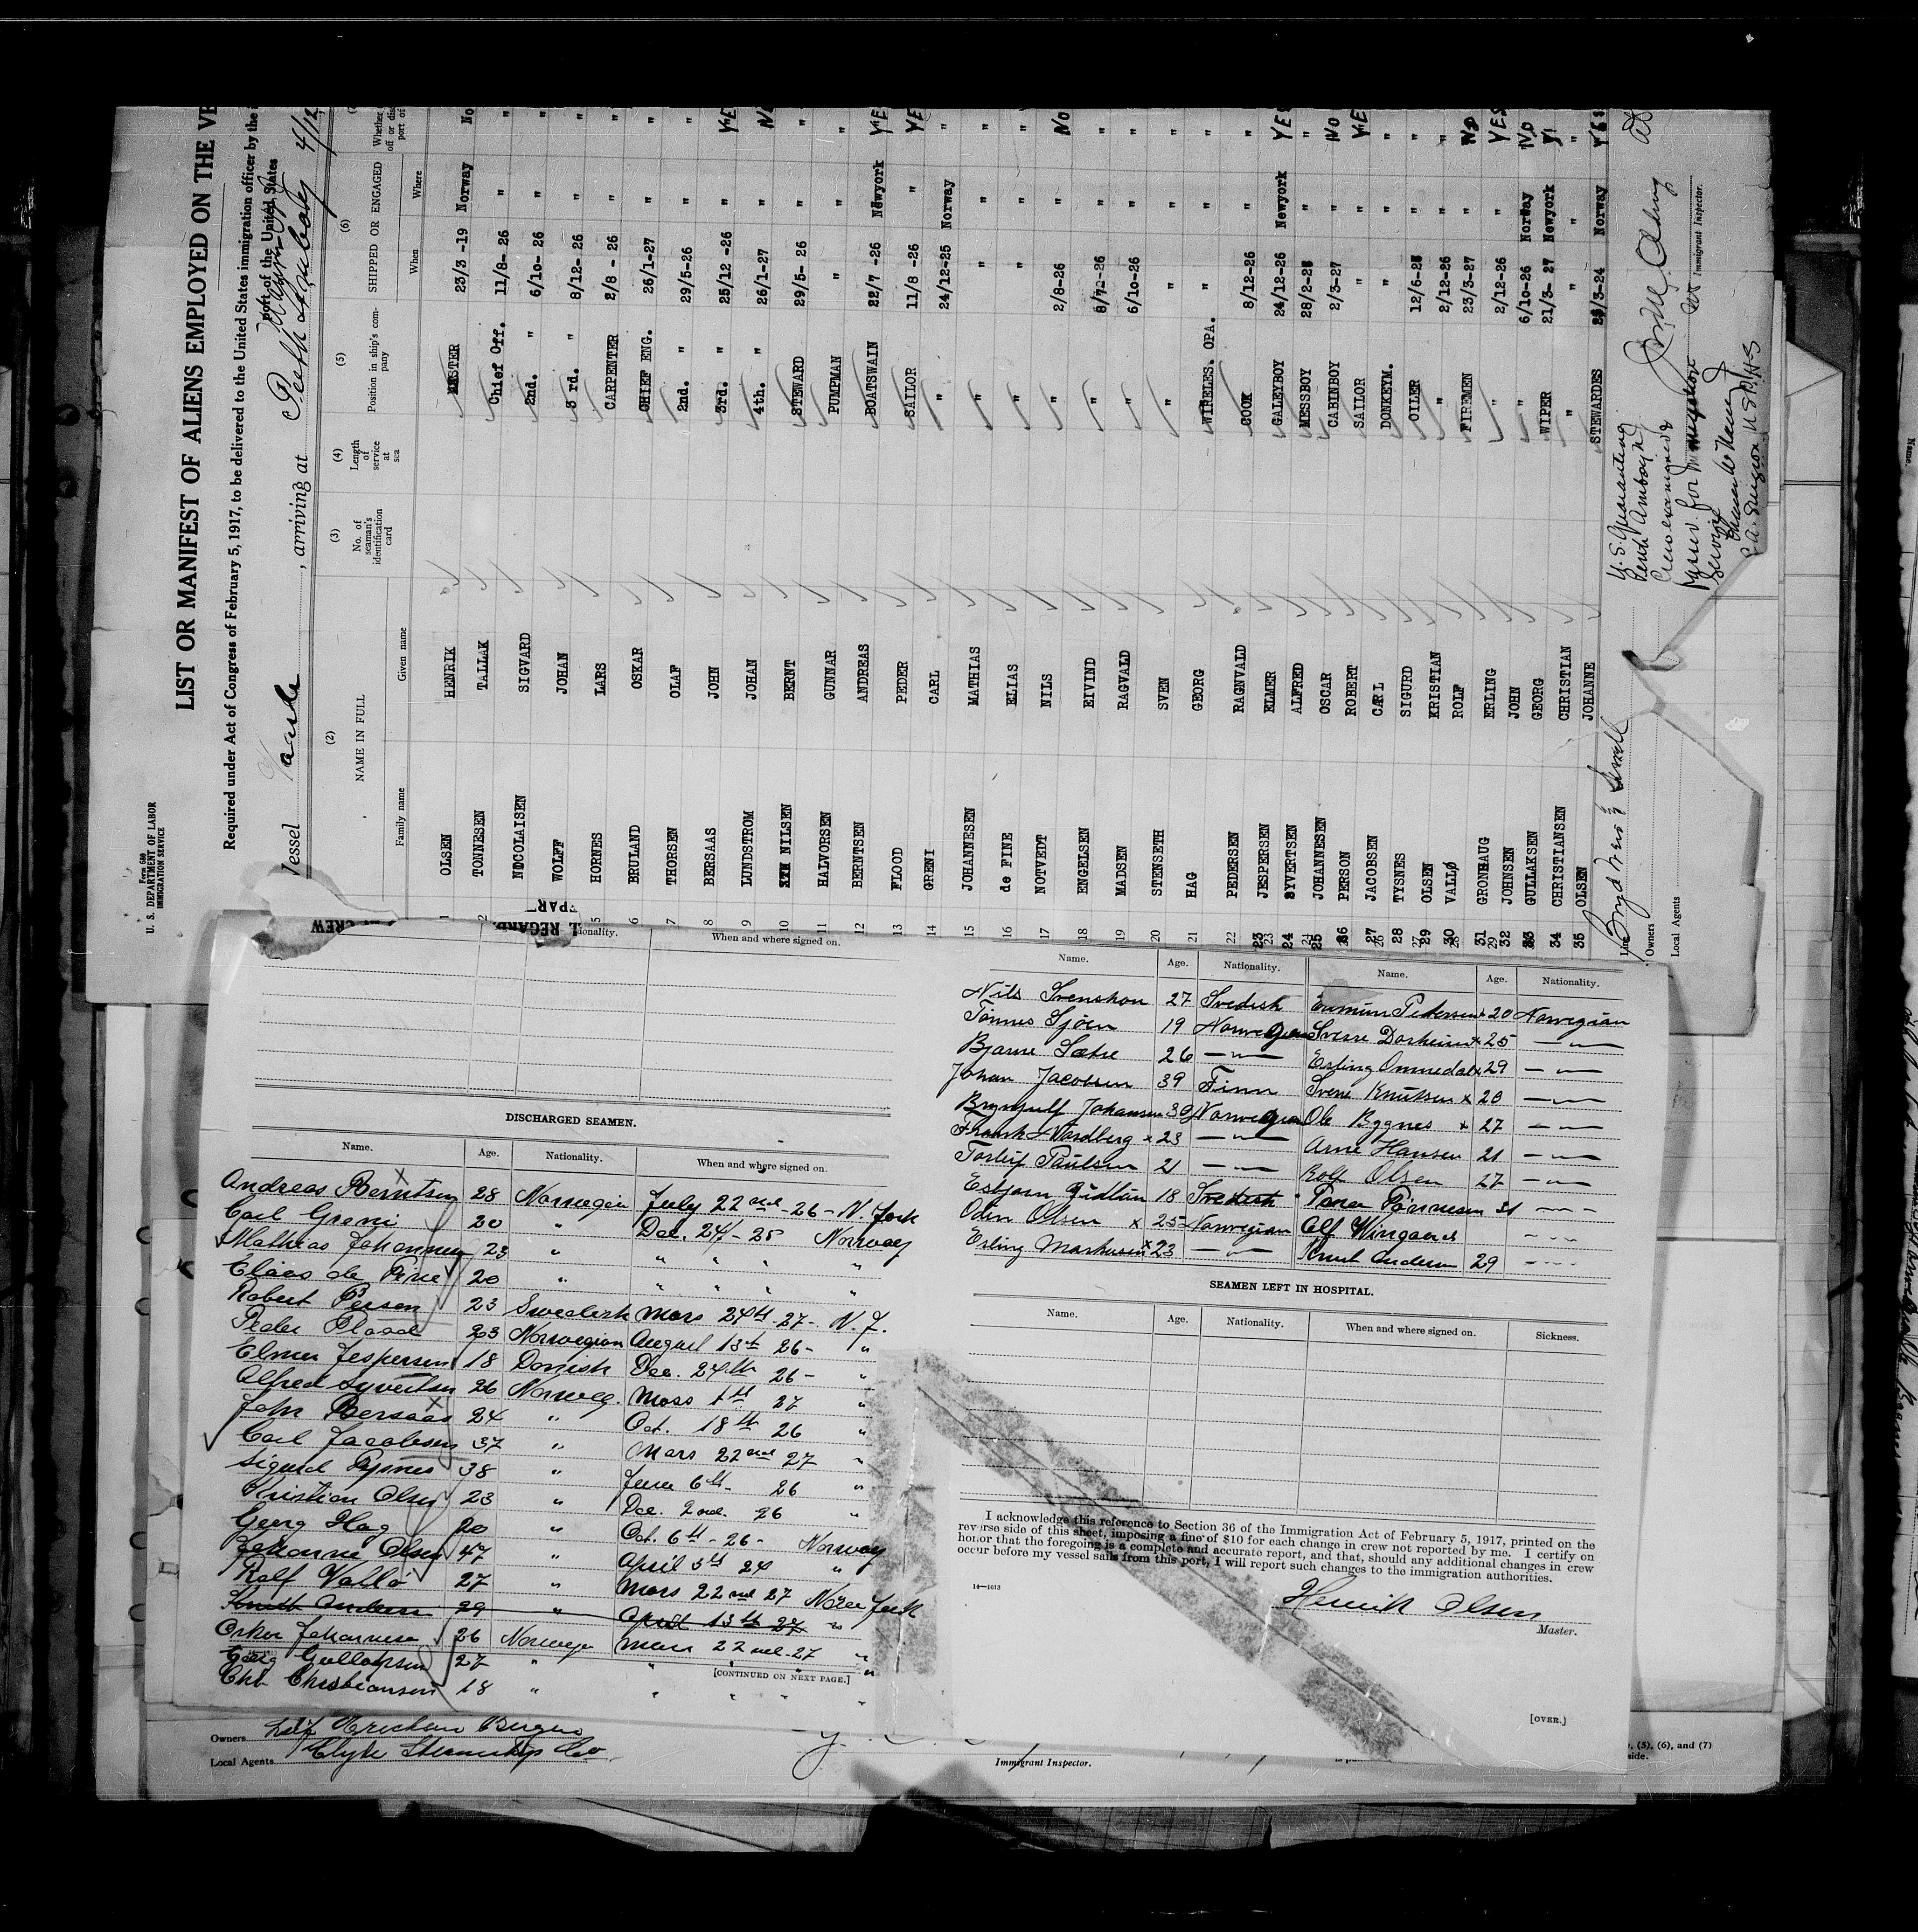 U. S. DEPARTMENT OF LABOR
IMMIGRATION SERVICE
Form 680
LIST OR MANIFEST OF ALIENS EMPLOYED ON THE VE
Required under Act of Congress of February 5, 1917, to be delivered to the United States immigration officer by the
port of the United States
Vessel , arriving at Perth Amboy 4/12
(2) (3) (4) (5) (6)
NAME IN FULL No. of seaman's identification card Length of service at sea Position in ship's company SHIPPED OR ENGAGED
Family name Given name When Where
1 OLSEN HENRIK MASTER 23/3 -19 Norway No
2 TONNESEN TALLAK Chief Off. 11/8- 26 " "
NICOLAISEN SIGVARD 2nd. " 6/10- 26 " "
WOLFF JOHAN 3 rd. " 8/12- 26 " "
5 HORNES LARS CARPENTER 2/8 - 26 " "
6 BRULAND OSKAR CHIEF ENG. 26/1-27 " "
7 THORSEN OLAF 2nd. " 29/5-26 " "
8 BERSAAS JOHN 3rd. " 25/12 -26 " YE
9 LUNDSTROM JOHAN 4th. " 26/1-27 " N
10 NILSEN BERNT STEWARD 29/5- 26 " "
11 HALVORSEN GUNNAR PUMPMAN " " "
12 BERNTSEN ANDREAS BOATSWAIN 22/7 -26 Newyork YE
13 FLOOD PEDER SAILOR 11/8 -26 " YE
14 GRENI CARL " 24/12-25 Norway "
15 JOHANNESEN MATHIAS " " " "
16 de FINE ELIAS " " " "
17 NOTVEDT NILS " 2/8-26 " No
18 ENGELSEN EIVIND " " "
19 MADSEN RAGVALD " 6/10-26 " "
20 STENSETH SVEN " " " "
21 HAG GEORG WIRELES. OPA. " " "
22 PEDERSEN RAGNVALD COOK 8/12-26 " "
23 JESPERSEN ELMER GALEYBOY 24/12-26 Newyork YES
24 SYVERTSEN ALFRED MESSBOY " "
25 JOHANNESEN OSCAR CABINBOY 2/3-27 " NO
26 PERSON ROBERT SAILOR " " YE
27 JACOBSEN CARL DONKEYM. " " "
28 TYSNES SIGURD OILER " "
29 OLSEN KRISTIAN " 2/12-26 " "
30 VALLØ ROLF FIREMEN 23/3-27 " No
31 GRONHAUG ERLING " 2/12-26 " YES
32 JOHNSEN JOHN " 6/10-26 Norway No
33 GULLAKSEN GEORG WIPER 21/3- 27 Newyork
34 CHRISTIANSEN CHRISTIAN " " " "
35 OLSEN JOHANNE STEWARDES Norway YES
U. S. Quarantine
Perth Amboy NJ
Crew examined &
passed for
Service
Immigrant Inspector.
Line
Owners
Local Agents
CREW
REGARD
PART
When and where signed on.
DISCHARGED SEAMEN.
Name. Age. Nationality. When and where signed on.
Andreas Berntsen 28 Norwegein July 22nd - 26 - N. York
Carl Greni 20 " Dec. 24 - 25 Norway
Mathias Johannesen 23 " " " " "
Elias de Fine 20 " " " " "
Robert Person 23 Swedish Mars 24th - 27 - N. Y.
Peder Flood 23 Norwegian August 13th 26 - "
Elmer Jespersen 18 Danish Dec. 24th 26 - "
Alfred Syvertsen 26 Norweg. Mars 1st 27 "
John Bersaas 24 " Oct. 18th 26 "
Carl Jacobsen 37 " Mars 22nd 27 "
Sigurd Tysnes 38 " June 6th - 26 "
Kristian Olsen 23 " Dec. 2nd. 26 "
Georg Hag 20 " Oct. 6th - 26 - Norway
Johanne Olsen 47 " April 3th 24 "
Rolf Vallö 27 " Mars 22nd 27 New York
Knut Andersen 29 " April 13th 27 "
Oskar Johannesen 26 Norwege Mars 22nd - 27 "
Georg Gullaksen 27 " " " " "
Chr. Christiansen 18 " " " " "
[CONTINUED ON NEXT PAGE.]
Name. Age. Nationality. Name. Age. Nationality.
Nils Svenshon 27 Svedish Enmünn Pedersen x 20 Norwegian
Tønnes Sjøen 19 Norwegian Sverre Dorheim x 25 — " —
Bjarne Sætre 26 — " — Erling Ommedal x 29 — " —
Johan Jacobsen 39 Finn Sverre Knutsen x 20 — " —
Brynjulf Johansen 39 Norwegian Ole Bygnes x 27 — " —
Frank Nordberg x 23 — " — Arne Hansen 21 — " —
Torleif Paulsen 21 — " — Rolf Olsen 27 — " —
Esbjørn 18 Svedish
Odin Olsen x 25 Norwegian Alf Wingaard - " -
Erling Markusen x 23 — " — Knut Andersen 29 - " -
SEAMEN LEFT IN HOSPITAL.
Name. Age. Nationality. When and where signed on. Sickness.
I acknowledge this reference to Section 36 of the Immigration Act of February 5, 1917, printed on the
reverse side of this sheet, imposing a fine of $10 for each change in crew not reported by me. I certify on
honor that the foregoing is a complete and accurate report, and that, should any additional changes in crew
occur before my vessel sails from this port, I will report such changes to the immigration authorities.
14—1613
Henrik Olsen
Master.
[OVER.]
Owners Leif Erichsen Bergen
Local Agents Clyde Steamship Co
Immigrant Inspector.
(5), (6), and (7)
side.